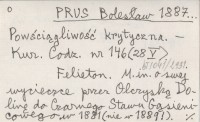 PRUS Bolesław 1887...
Powściągliwość krytyczna. —
Kur. Codz. nr 146 (28 V)
Felieton. M.in. o swej
wycieczce przez Olczyską Do-
linę do Czarnego Stawu Gąsieni-
cowego w 1881 (nie w 1889!).